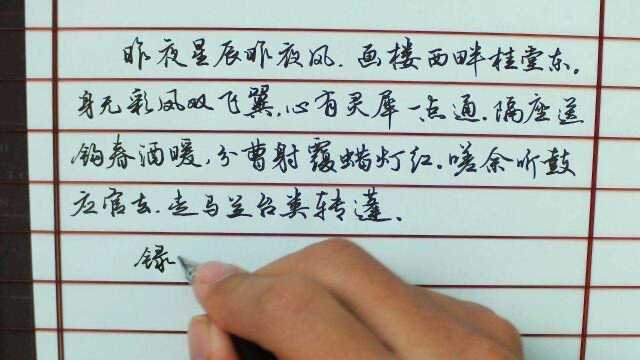 昨夜星辰昨夜风.画楼西畔桂堂东。
身无彩凤双飞翼,心有灵犀一点通.隔座送
钩春酒暖,分曹射覆蜡灯红。嗟余听鼓
应官去.走马兰台类转蓬.
录